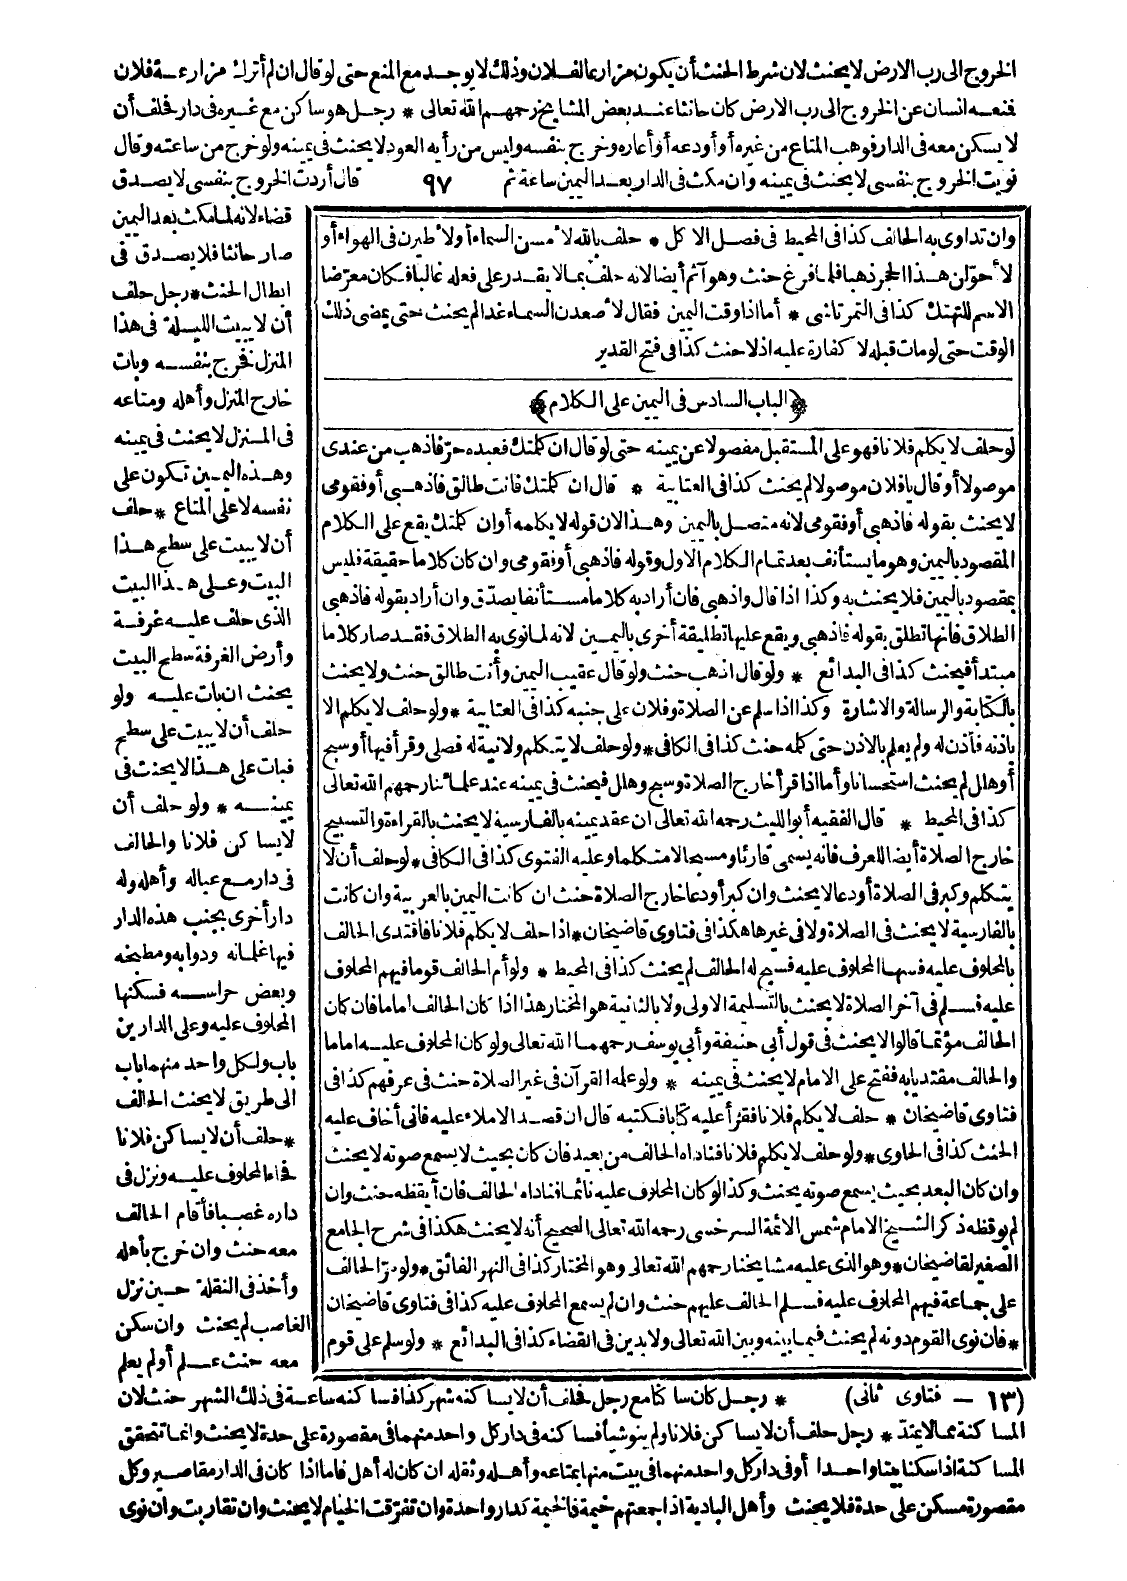 الخروج الى رب الارض لا يحنث لان شرط الحنث أن يكون مزارعا لفلان وذلك لا يوجد مع المنع حتى لو قال ان لم أترك مزارعة فلان
فنعه انسان عن الخروج الى رب الارض كان حانثا عند بعض المشايخ رحمهم الله تعالى * رجل هو ساكن مع غيره فى دار فحلف أن
لا يسكن معه فى الدار فوهب المتاع من غيره أو أودعه أو أعاره وخرج بنفسه وليس من رأيه العود لا يحنث فى يمينه ولو خرج من ساعته وقال
نويت الخروج بنفسى لا يحنث فى يمينه وان مكث فى الدار بعد اليمين ساعة ثم ٩٧ قال أردت الخروج بنفسى لا يصدق
قضاء لانه لما مكث بعد اليمين
صار حانثا فلا يصدق فى
ابطال الحنث * رجل حلف
أن لا يبيت الليلة فى هذا
المنزل فخرج بنفسه وبات
خارج المنزل وأهله ومتاعه
فى المنزل لا يحنث فى يمينه
وهذه اليمين تكون على
نفسه لا على المتاع * حلف
أن لا يبيت على سطح هذا
البيت وعلى هذا البيت
الذى حلف عليه غرفة
وأرض الغرفة سطح البيت
يحنث ان بات عليه ولو
حلف أن لا يبيت على سطح
فبات على هذا لا يحنث فى
يمينه * ولو حلف أن
لا يساكن فلانا والحالف
فى دار مع عياله وأهله وله
دار أخرى بجنب هذه الدار
فيها غلمانه ودوابه ومطبخه
وبعض حراسه فسكنها
المحلوف عليه وعلى الدارين
باب ولكل واحد منهما باب
الى طريق لا يحنث الحالف
* حلف أن لا يساكن فلانا
فجاء المحلوف عليه ونزل فى
داره غصبا فأقام الحالف
معه حنث وان خرج بأهله
وأخذ فى النقلة حين نزل
الغاصب لم يحنث وان سكن
معه حنث علم أو لم يعلم
وان تداوى به الحالف كذا فى المحيط فى فصل الاكل * حلف بالله لأمسن السماء أو لأطيرن فى الهواء أو
لأحولن هذا الحجر ذهبا فلما فرغ حنث وهو آثم أيضا لانه حلف بما لا يقدر على فعله غالبا فكان معرضا
الاسم للتهتك كذا فى التمرتاشى * أما اذا وقت اليمين فقال لأصعدن السماء غدا لم يحنث حتى يمضى ذلك
الوقت حتى لو مات قبله لا كفارة عليه اذ لا حنث كذا فى فتح القدير
﴿الباب السادس فى اليمين على الكلام﴾
لو حلف لا يكلم فلانا فهو على المستقبل مفصولا عن يمينه حتى لو قال ان كلمتك فعبده حر فاذهب من عندى
موصولا أو قال يا فلان موصولا لم يحنث كذا فى العتابية * قال ان كلمتك فانت طالق فاذهبى أو فقومى
لا يحنث بقوله فاذهبى أو فقومى لانه متصل باليمين وهذا لان قوله لا يكلمه أو ان كلمتك يقع على الكلام
المقصود باليمين وهو ما يستأنف بعد تمام الكلام الاول وقوله فاذهبى أو فقومى وان كان كلاما حقيقة فليس
بمقصود باليمين فلا يحنث به وكذا اذا قال واذهبى فان أراد به كلاما مستأنفا يصدق وان أراد بقوله فاذهبى
الطلاق فانها تطلق بقوله فاذهبى ويقع عليها تطليقة أخرى باليمين لانه لما نوى به الطلاق فقد صار كلاما
مبتدأ فيحنث كذا فى البدائع * ولو قال اذهب حنث ولو قال عقيب اليمين وأنت طالق حنث ولا يحنث
بالكتابة والرسالة والاشارة وكذا اذا سلم عن الصلاة وفلان على جنبه كذا فى العتابية * ولو حلف لا يكلم الا
باذنه فأذن له ولم يعلم بالاذن حتى كلمه حنث كذا فى الكافى * ولو حلف لا يتكلم ولا نية له فصلى وقرأ فيها أو سبح
أو هلل لم يحنث استحسانا وأما اذا قرأ خارج الصلاة وسبح وهلل فيحنث فى يمينه عند علمائنا رحمهم الله تعالى
كذا فى المحيط * قال الفقيه أبو الليث رحمه الله تعالى ان عقد يمينه بالفارسية لا يحنث بالقراءة والتسبيح
خارج الصلاة أيضا للعرف فانه يسمى قارئا ومسبحا لا متكلما وعليه الفتوى كذا فى الكافى * لو حلف أن لا
يتكلم وكبر فى الصلاة أو دعا لا يحنث وان كبر أو دعا خارج الصلاة حنث ان كانت اليمين بالعربية وان كانت
بالفارسية لا يحنث فى الصلاة ولا فى غيرها هكذا فى فتاوى قاضيخان * اذا حلف لا يكلم فلانا فاقتدى الحالف
بالمحلوف عليه فسها المحلوف عليه فسبح له الحالف لم يحنث كذا فى المحيط * ولو أم الحالف قوما فيهم المحلوف
عليه فسلم فى آخر الصلاة لا يحنث بالتسليمة الاولى ولا بالثانية هو المختار هذا اذا كان الحالف اماما فان كان
الحالف مؤتما قالوا لا يحنث فى قول أبى حنيفة وأبى يوسف رحمهما الله تعالى ولو كان المحلوف عليه اماما
والحالف مقتديا به ففتح على الامام لا يحنث فى يمينه * ولو علمه القرآن فى غير الصلاة حنث فى عرفهم كذا فى
فتاوى قاضيخان * حلف لا يكلم فلانا فقرأ عليه كتابا فكتبه قال ان قصد الاملاء عليه فانى أخاف عليه
الحنث كذا فى الحاوى * ولو حلف لا يكلم فلانا فناداه الحالف من بعيد فان كان بحيث لا يسمع صوته لا يحنث
وان كان البعد بحيث يسمع صوته يحنث وكذا لو كان المحلوف عليه نائما فناداه الحالف فان أيقظه حنث وان
لم يوقظه ذكر الشيخ الامام شمس الائمة السرخسى رحمه الله تعالى الصحيح أنه لا يحنث هكذا فى شرح الجامع
الصغير لقاضيخان * وهو الذى عليه مشايخنا رحمهم الله تعالى وهو المختار كذا فى النهر الفائق * ولو مر الحالف
على جماعة فيهم المحلوف عليه فسلم الحالف عليهم حنث وان لم يسمع المحلوف عليه كذا فى فتاوى قاضيخان
* فان نوى القوم دونه لم يحنث فيما بينه وبين الله تعالى ولا يدين فى القضاء كذا فى البدائع * ولو سلم على قوم
(١٣ - فتاوى ثانى) * رجل كان ساكنا مع رجل فحلف أن لا يساكنه شهر كذا فساكنه ساعة فى ذلك الشهر حنث لان
المساكنة مما لا يمتد * رجل حلف أن لا يساكن فلانا ولم ينو شيأ فساكنه فى دار كل واحد منهما فى مقصورة على حدة لا يحنث وانما تتحقق
المساكنة اذا سكنا بيتا واحدا أو فى دار كل واحد منهما فى بيت منها بمتاعه وأهله وثقله ان كان له أهل فاما اذا كان فى الدار مقاصير وكل
مقصورة مسكن على حدة فلا يحنث وأهل البادية اذا جمعتهم خيمة فالخيمة كدار واحدة وان تفرقت الخيام لا يحنث وان تقاربت وان نوى